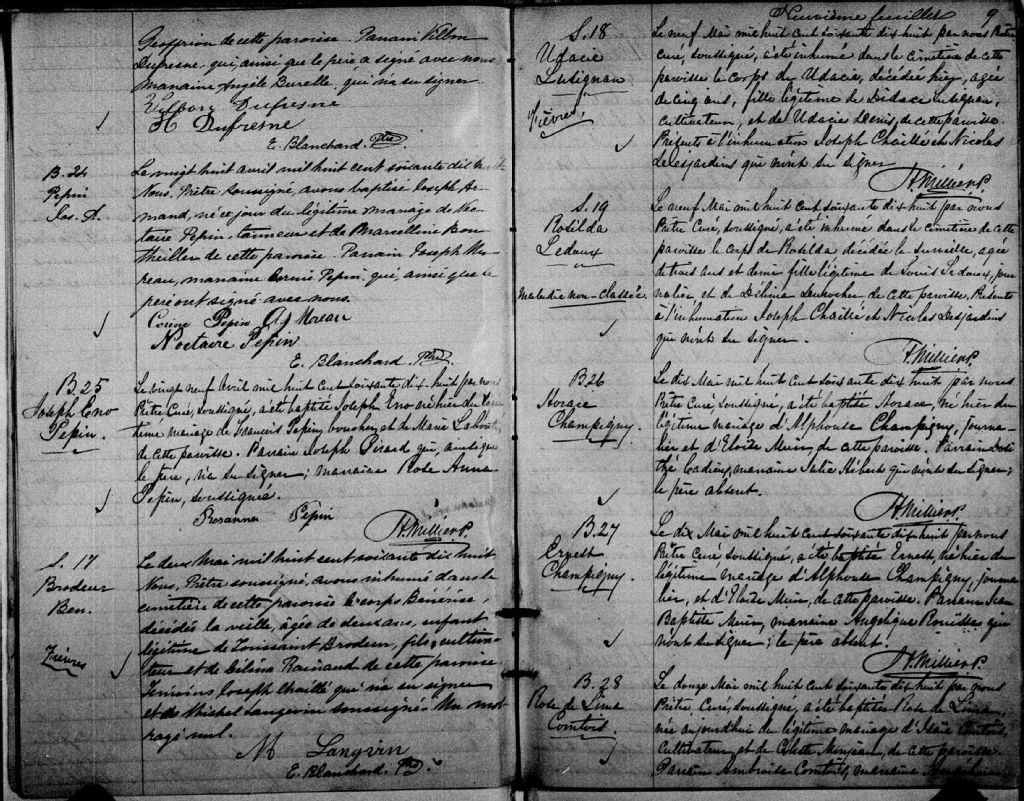 Geoffrion de cette paroisse. Parrain Vilbon
Dufresne, qui ainsi que le père a signé avec nous
Marraine Angèle Burelle, qui n'a su signer
Vilbon Dufresne
H Dufresne
E. Blanchard. Ptre
B. 24
Pepin
Jos. A.
Le vingt huit avril mil huit cent soixante dix huit
Nous, Prêtre soussigné, avons baptisé Joseph Ar-
mand, né ce jour du légitime mariage de Nec-
taire Pepin, tanneur et de Marcelline Bou-
theiller de cette paroisse. Parrain Joseph Mo-
reau, marraine Corinne Pepin, qui, ainsi que le
père ont signé avec nous.
Corine Pepin Moreau
Noctaire Pepin
E. Blanchard. Ptre
B. 25
Joseph Eno
Pepin.
Le vingt neuf Avril mil huit cent soixante dix huit par nous
Prêtre Curé, soussigné, a été baptisé Joseph Eno né hier du légi-
time mariage de François Pepin, boucher, et de Marie
de cette paroisse. Parrain Joseph Girard qui, ainsi que
le père, n'a su signer; marraine Rose Anna
Pepin, soussignée.
Rosanna Pepin
S. 17
Brodeur
Ben.
Fièvres
Le deux Mai mil huit cent soixante dix huit
Nous, Prêtre soussigné, avons inhumé dans le
cimetière de cette paroisse le corps Bénérise,
décédée la veille, âgée de deux ans, enfant
légitime de Toussaint Brodeur, fils, cultiva-
teur et de Célina Rainaud de cette paroisse
Témoins Joseph Chaillé qui n'a su signer
et de Michel Langevin soussigné. Un mot
rayé nul.
M Langvin
E. Blanchard. Ptre
Neuvième feuillet 9
S. 18
Udacie
Lusignan
Fièvres
Le neuf Mai mil huit cent soixante dix huit par nous Prêtre
curé, soussigné, a été inhumé dans le cimetière de cette
paroisse le corps de Udacie, décédée hier, agée
de cinq ans, fille légitime de Didace Lusignan,
cultivateur, et de Udacie Denis, de cette paroisse.
Présents à l'inhumation Joseph Chaillé et Nicolas
Lesjardins qui n'ont su signer
S. 19
Rosilda
Ledoux
Maladie non-classée
Le neuf Mai mil huit cent soixante dix huit par nous
Prêtre Curé, soussigné, a été inhumé dans le cimetière de cette
paroisse le corps de Rosilda décédée la surveille, agée
de trois ans et demi fille légitime de Louis Ledoux, jour-
nalier, et de Délina de cette paroisse, Présents
à l'inhumation Joseph Chaillé et Nicolas Lesjardins
qui n'ont su signer.
B26
Horace
Champigny.
Le dix Mai mil huit cent soixante dix huit par nous
Prêtre Curé, soussigné, a été baptisé Horace, né hier du
légitime mariage d'Alphonse Champigny, journa-
lier et d'Eloïse Meun, de cette paroisse. Parrain
Cadieux, marraine Julie Hébert qui n'ont su signer;
le père absent.
B. 27
Ernest
Champigny.
Le dix Mai mil huit cent soixante dix huit par nous
Prêtre Curé, soussigné, a été baptisé Ernest, né hier du
légitime mariage d'Alphonse Champigny, journa-
lier, et d'Eloïse Meun, de cette paroisse. Parrain Jean
Baptiste Meun, marraine Angélique qui
n'ont su signer; le père absent.
B. 28
Rose de Lima
Comtois.
Le douze Mai mil huit cent soixante dix huit par nous
Prêtre Curé, soussigné, a été baptisée Rose de Lima
née aujourd'hui du légitime mariage d'Isaïe Comtois,
Cultivateur, et de Céleste Monjeau, de cette paroisse.
Parrain Ambroise Comtois, marraine